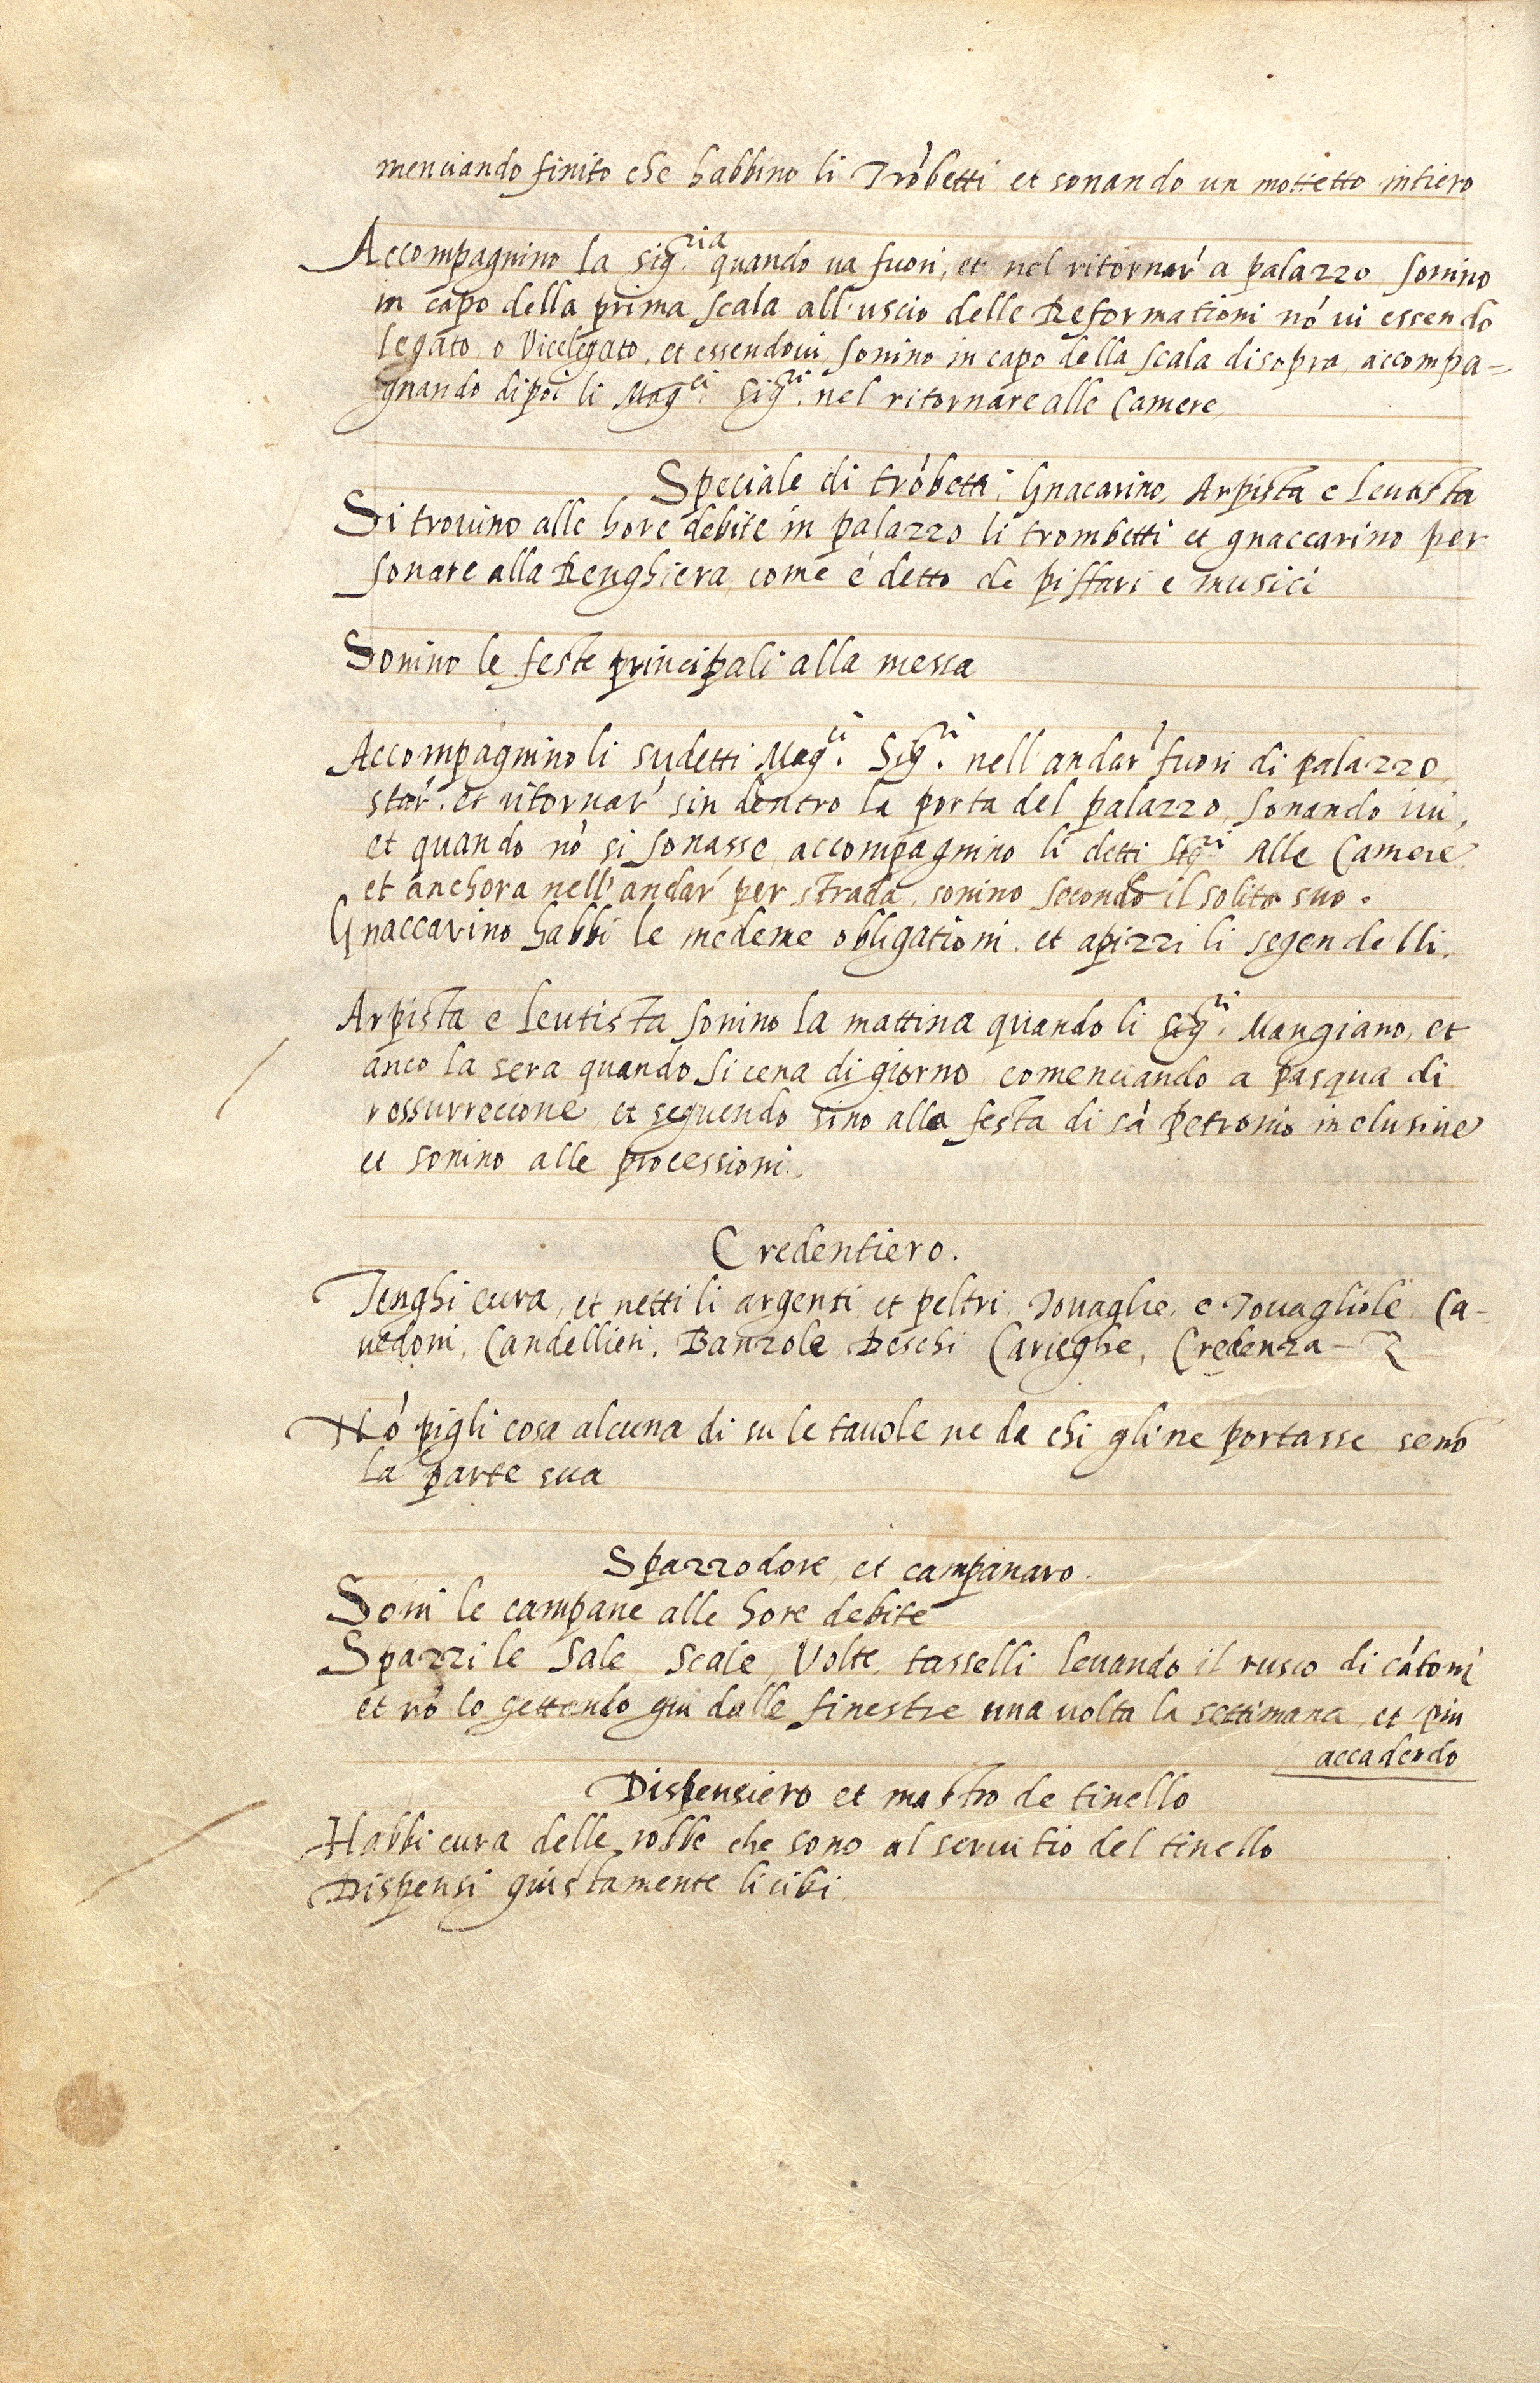 menciando finito che habbino li Trõbetti et sonando un mottetto intiero
Accompagnino la Sig.ria quando ua fuori, et nel ritornar' a palazzo sonino
in capo della prima scala all'uscio delle Reformationi nõ ui essendo
legato o Vicelegato, et essendoui sonino in capo della scala disopra, accompa=
gnando dipoi li Mag.ci Sig.ri nel ritornare alle Camere
Speciale di trõbetti, Gnacarino, Arpista e Leutista
Si trouino alle hore debite in palazzo li trombetti et gnaccarino per
sonare alla Renghiera, come è detto de piffari e musici
Sonino le feste principali alla messa
Accompagnino li sudetti Mag.ci Sig.ri nell'andar' fuori di palazzo,
star', et ritornar' sin dentro la porta del palazzo, sonando iui,
et quando nõ si sonasse, accompagnino li detti Sig.ri alle Camere
et anchora nell'andar' per strada, sonino secondo il solito suo.
Gnaccarino habbi le medeme obligationi, et apizzi li segendelli.
Arpista e Leutista sonino la mattina quando li Sig.ri Mangiano, et
anco la sera quando si cena di giorno comenciando a pasqua di
rossurrecione et seguendo sino alla festa di sã petronio inclusiue
et sonino alle processioni.
Credentiero.
Tenghi cura, et netti li argenti et peltri, Touaglie, e Touagliole, Ca-
uedoni, Candellieri, Banzole, Deschi Carieghe, Credenza –
Nõ pigli cosa alcuna di su le tauole ne da chi gli ne portasse senõ
la parte sua
Spazzodore, et campanaro.
Soni le campane alle hore debite
Spazzi le Sale Scale, Volte, tasselli leuando il rusco di cãtoni
et nõ lo gettando giu dalle finestre una uolta la settimana, et piu
accadendo
Dispensiero et mastro de tinello
Habbi cura delle robbe che sono al seruitio del tinello
Dispensi giustamente li cibi.